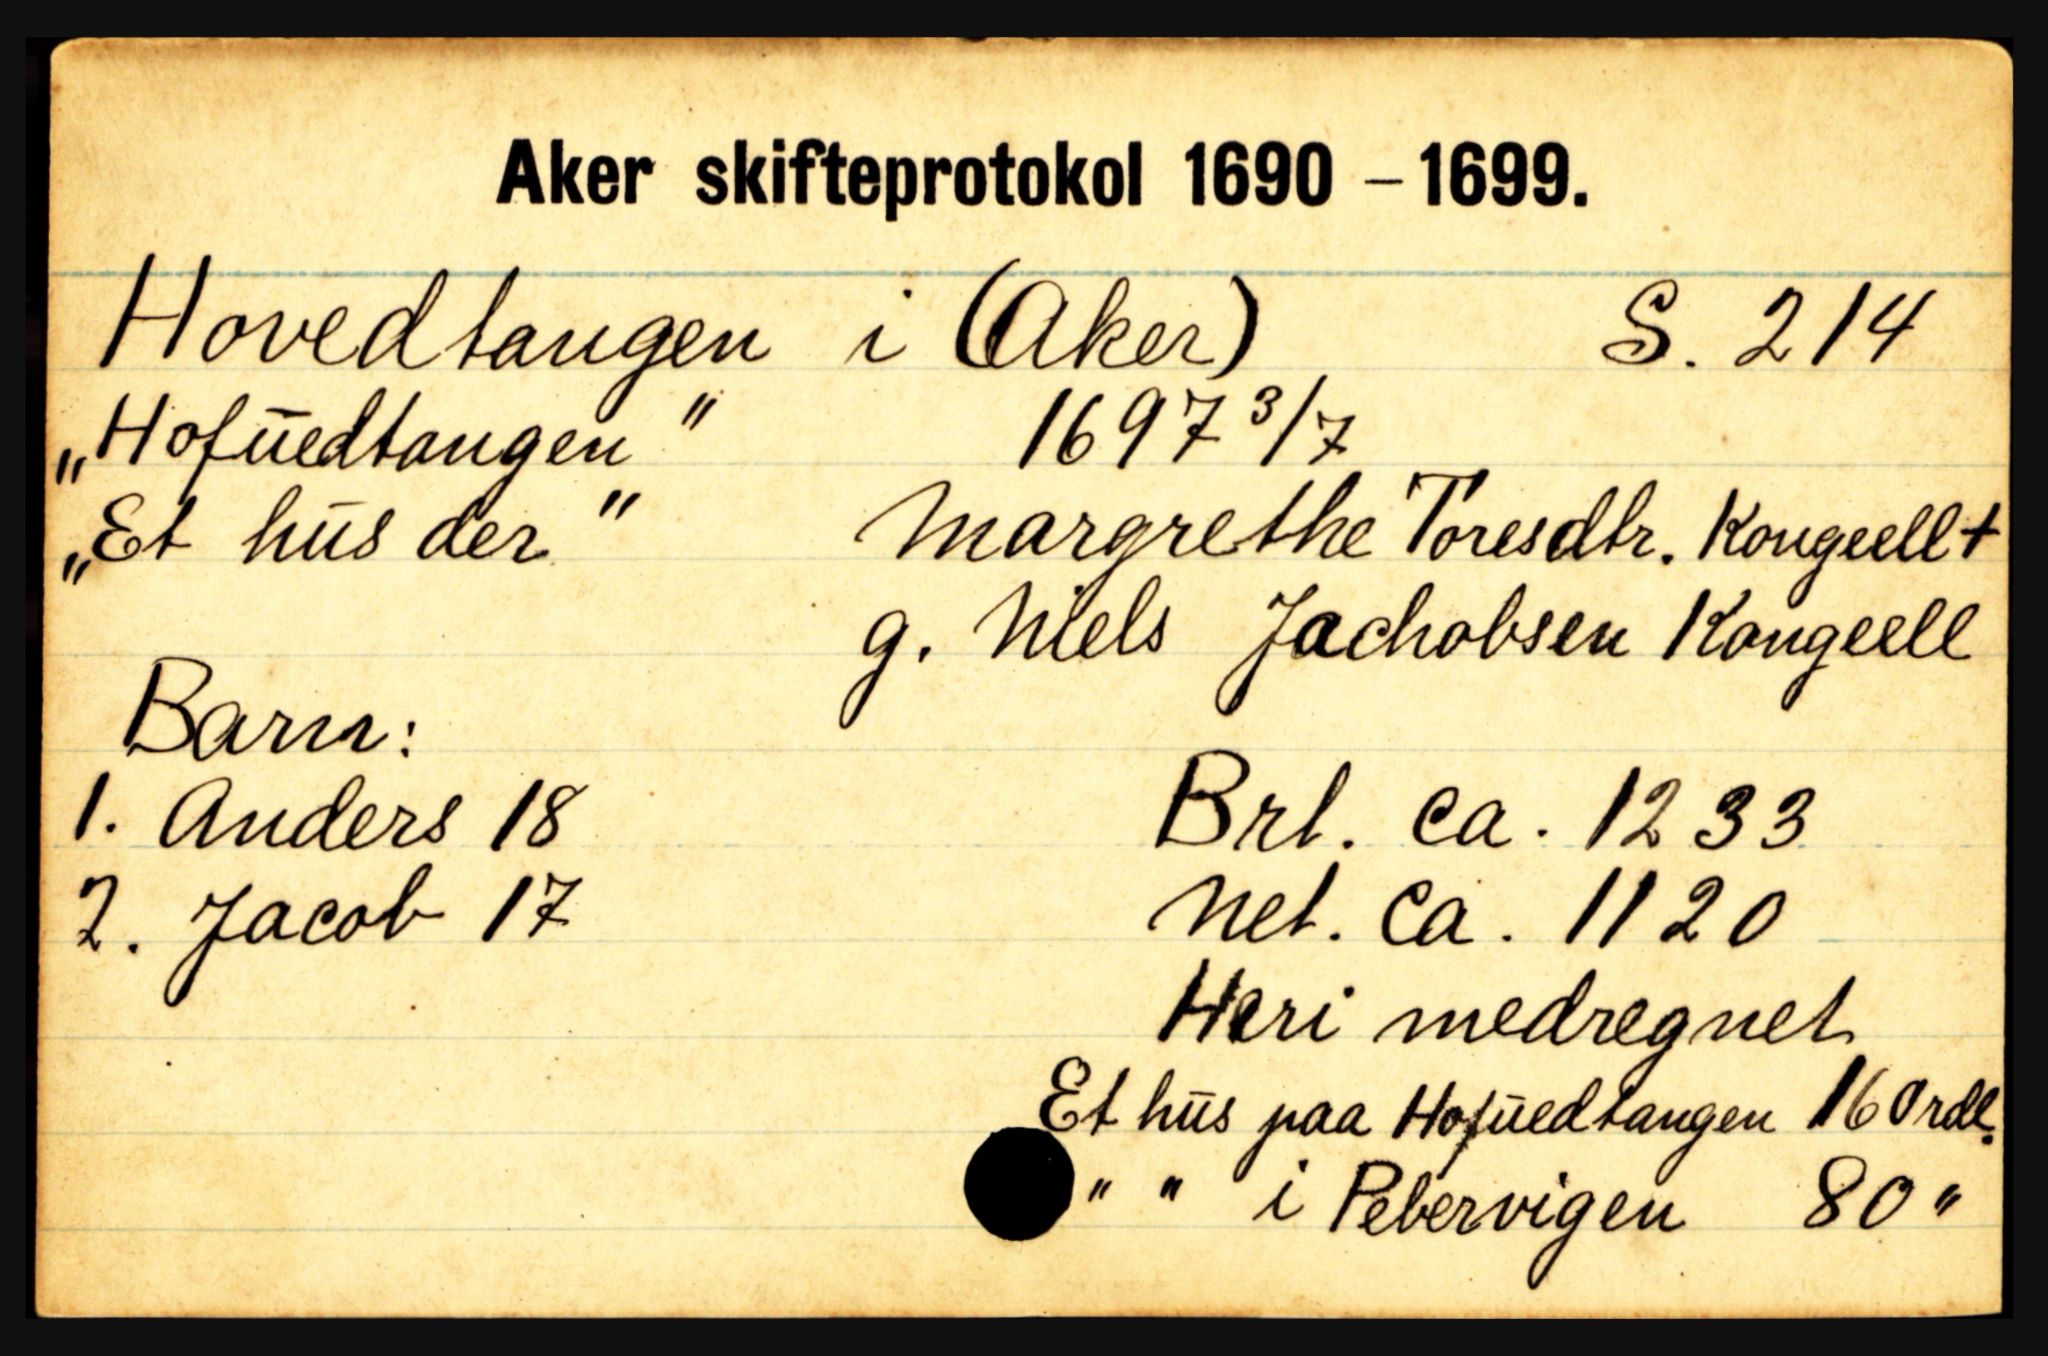 Aker skifteprotokol 1690 – 1699.
Hovedtangen i (Aker) S. 214
„Hofūedtangen" 1697 3/7
„Et hūs der" Margrethe Toresdtr. Kongeell +
g. Niels Jachobsen Kongeell
Barn:
1. Anders 18 Brt. ca. 1233
2. Jacob 17 Net. ca. 1120
Heri medregnet
Et hūs paa Hofūedtangen 160 rdl.
" " i Pebervigen 80 "